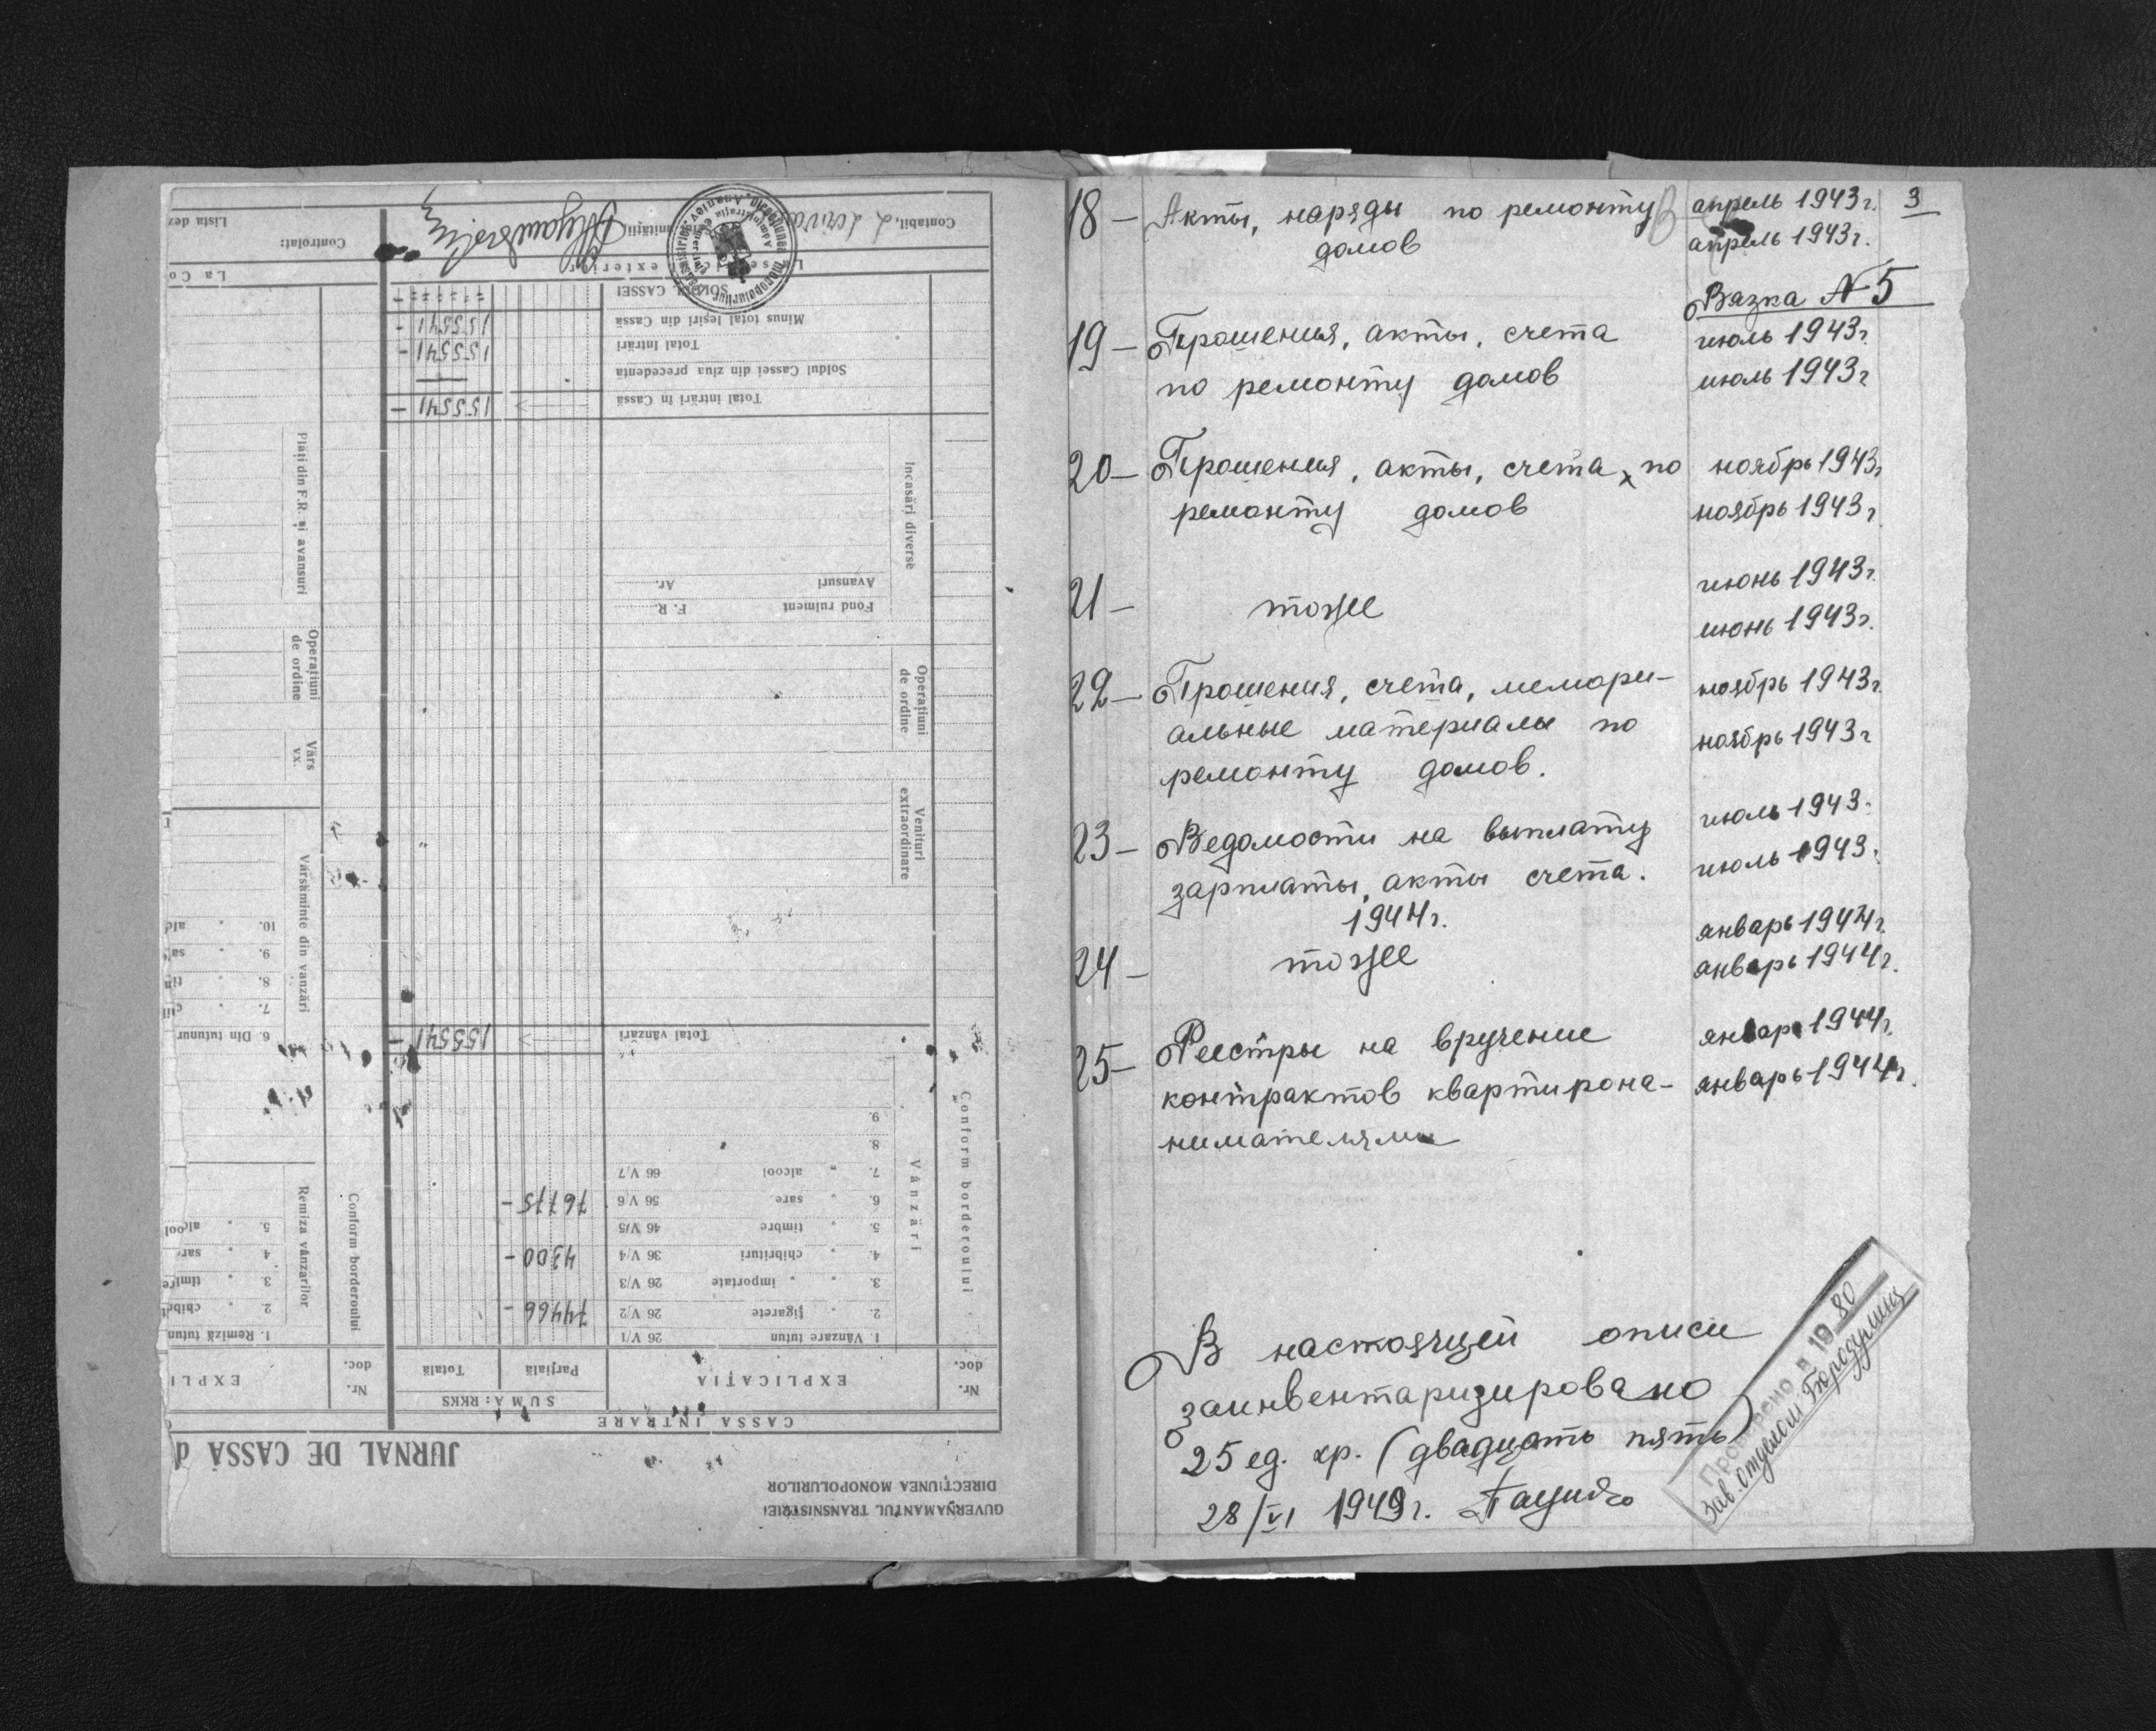 GUVERNAMANTUL TRANSNISTRIEI
DIRECȚIUNEA MONOPOLURILOR
JURNAL DE CASSĂ
CASSA INTRARE
Nr. doc.
EXPLICAȚIA
SUMA: RKKS
Parțială
Totală
Nr. doc.
EXPLI
Conform borderoului
Vânzări
1. Vânzare tutun 26 V/1
2. " țigarete 26 V/2 74466 -
3. " " importate 26 V/3
4. " chibrituri 36 V/4 4300 -
5. " timbre 46 V/5
6. " sare 56 V/6 76775 -
7. " alcool 66 V/7
8.
9.
Total vânzări 155541 -
Venituri extraordinare
Operațiuni de ordine
Fond rulment F. R.
Avansuri Ar.
Incasări diverse
Total intrări în Cassă 155541 -
Soldul Cassei din ziua precedenta
Total intrări 155541 -
Minus total Ieșiri din Cassa 155541 -
SOLDUL CASSEI
Contabil,
Conform borderoului
Remiza vânzarilor
1. Remiză tutun
2. " chibri
3. " timbre
4. " sare
5. " alcool
Vărsăminte din vanzări
6. Din tutunur
7. "
8. "
9. "
10. "
Vărs vx.
Operațiuni de ordine
Plăți din F.R. și avansuri
La Co
Controlat:
Lista dez
3
18 – Акты, наряды по ремонту апрель 1943 г.
домов апрель 1943 г.
Вязка № 5
19 – Прошения, акты, счета июль 1943 г.
по ремонту домов июль 1943 г
20 – Прошения, акты, счета, по ноябрь 1943 г
ремонту домов ноябрь 1943 г
21 – тоже июнь 1943 г.
июнь 1943 г.
22 – Прошения, счета, мемори- ноябрь 1943 г.
альные материалы по ноябрь 1943 г
ремонту домов.
23 – Ведомости на выплату июль 1943.
зарплаты, акты счета. июль 1943.
1944 г.
24 – тоже январь 1944 г.
январь 1944 г.
25 – Реестры на вручение январь 1944 г.
контрактов квартирона- январь 1944 г.
нимателями
В настоящей описи
заинвентаризировано
25 ед. хр. (двадцать пять)
28/VI 1949 г.
Проверено в 1980
Зав. отделом